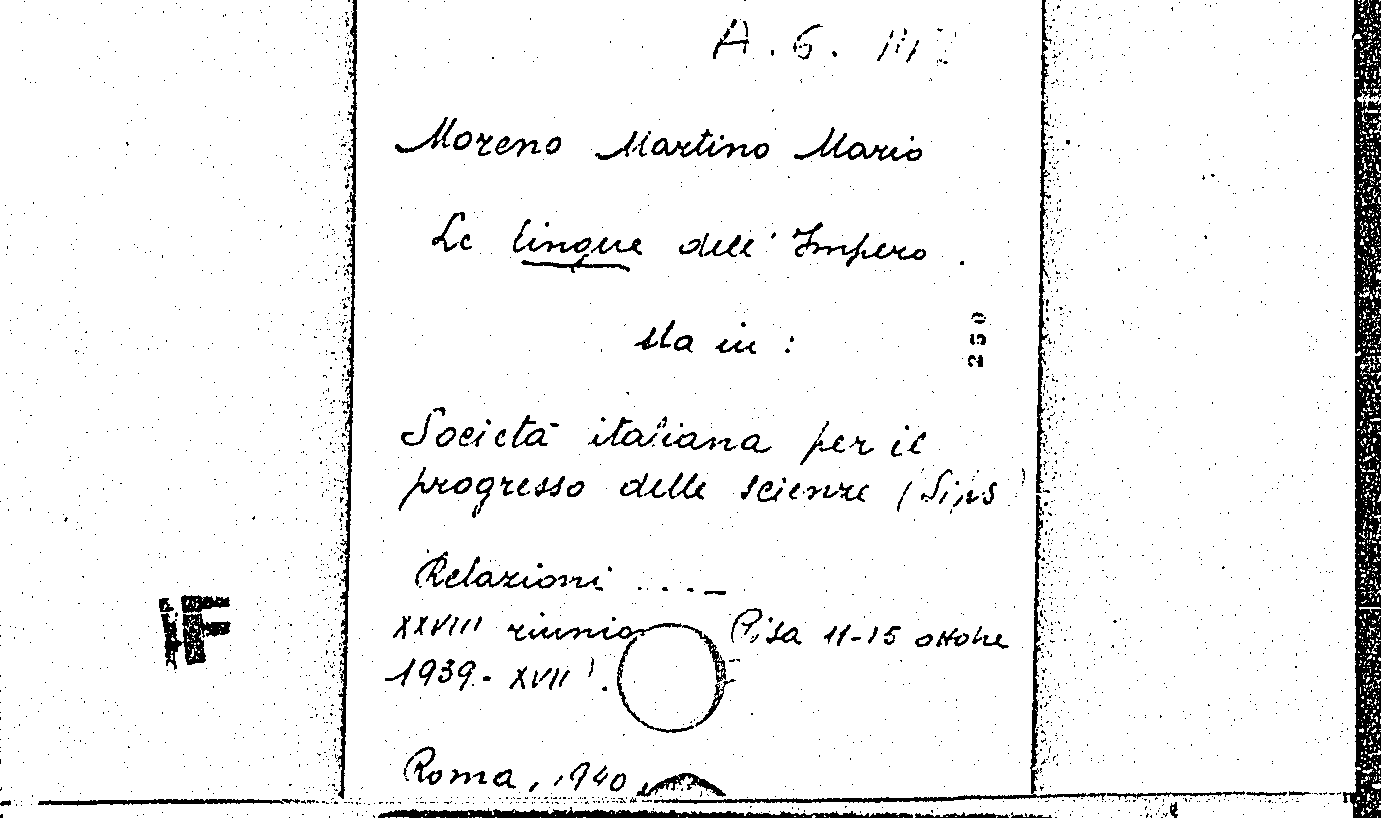 A. G. III
Moreno Martino Mario
Le lingue dell' Impero.
sta in :
250
Società italiana per il
progresso delle scienze (Sips)
Relazioni ....
XXVIII riunio Pisa 11-15 ottobre
1939 - XVII).
Roma, 1940
IF